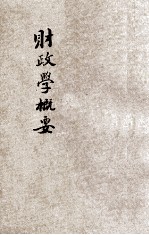 財政學概要